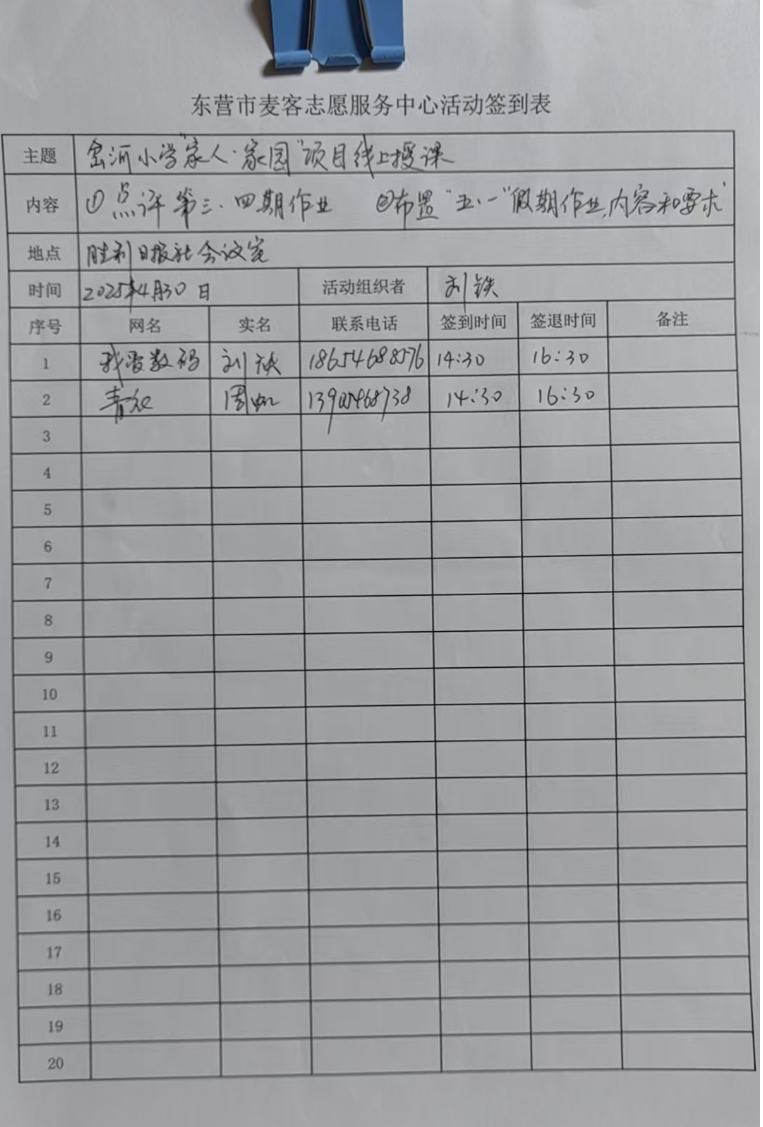 东营市麦客志愿服务中心活动签到表
主题 河小学"家人·家园"项目线上授课
内容 ①点评第三、四期作业 ②布置"五·一"假期作业,内容和要求
地点 胜利日报社会议室
时间 2025年4月30日 活动组织者 刘铁
序号 网名 实名 联系电话 签到时间 签退时间 备注
1 我爱数码 刘铁 18654688576 14:30 16:30
2 青 周 14:30 16:30
3
4
5
6
7
8
9
10
11
12
13
14
15
16
17
18
19
20